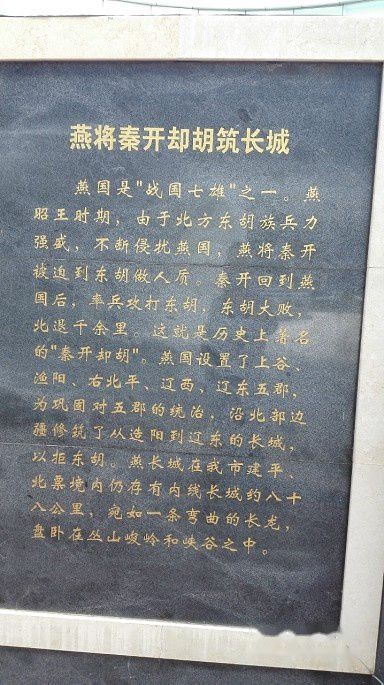 燕将秦开却胡筑长城
燕国是"战国七雄"之一。燕
昭王时期，由于北方东胡族兵力
强盛，不断侵扰燕国，燕将秦开
被迫到东胡做人质。秦开回到燕
国后，率兵攻打东胡，东胡大败，
北退千余里。这就是历史上著名
的"秦开却胡"。燕国设置了上谷、
渔阳、右北平、辽西、辽东五郡，
为巩固对五郡的统治，沿北部边
疆修筑了从造阳到辽东的长城，
以拒东胡。燕长城在我市建平、
北票境内仍存有内线长城约八十
八公里，宛如一条弯曲的长龙，
盘卧在丛山峻岭和峡谷之中。